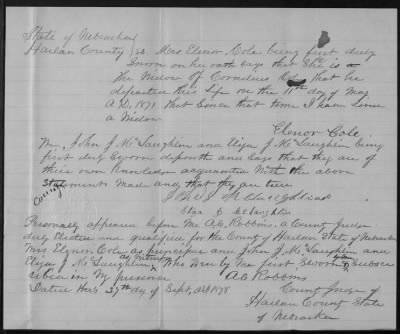 State of Nebraska
Harlan County } ss. Mrs Elenor Cole being first duly
Sworn on her oath Says that She is a
the Widow of Cornelius Cole, that he
departed this Life on the 11th day of May
A.D. 1871 that Since that time I have Lived
a Widow
Elenor Cole
We, John J McLaughlin and Eliza J McLaughlin being
first duly Sworn deposeth and Says that they are of
their own Knowledge acquainted With the above
Statements Made and that they are true
County
John J McLaughlin
Eliza J McLaughlin
Personally appeared before Me A.C. Robbins. a County Judge
duly Elected and qualified for the County of Harlan State of Nebraska
Mrs Elenor Cole as principal and John J McLaughlin and
Eliza J McLaughlin as Witnesses Who Were by Me first Sworn Subscribed
in My presence
A C Robbins
Dated this 27th day of Sept, A.D. 1878
County Judge of
Harlan County State
of Nebraska